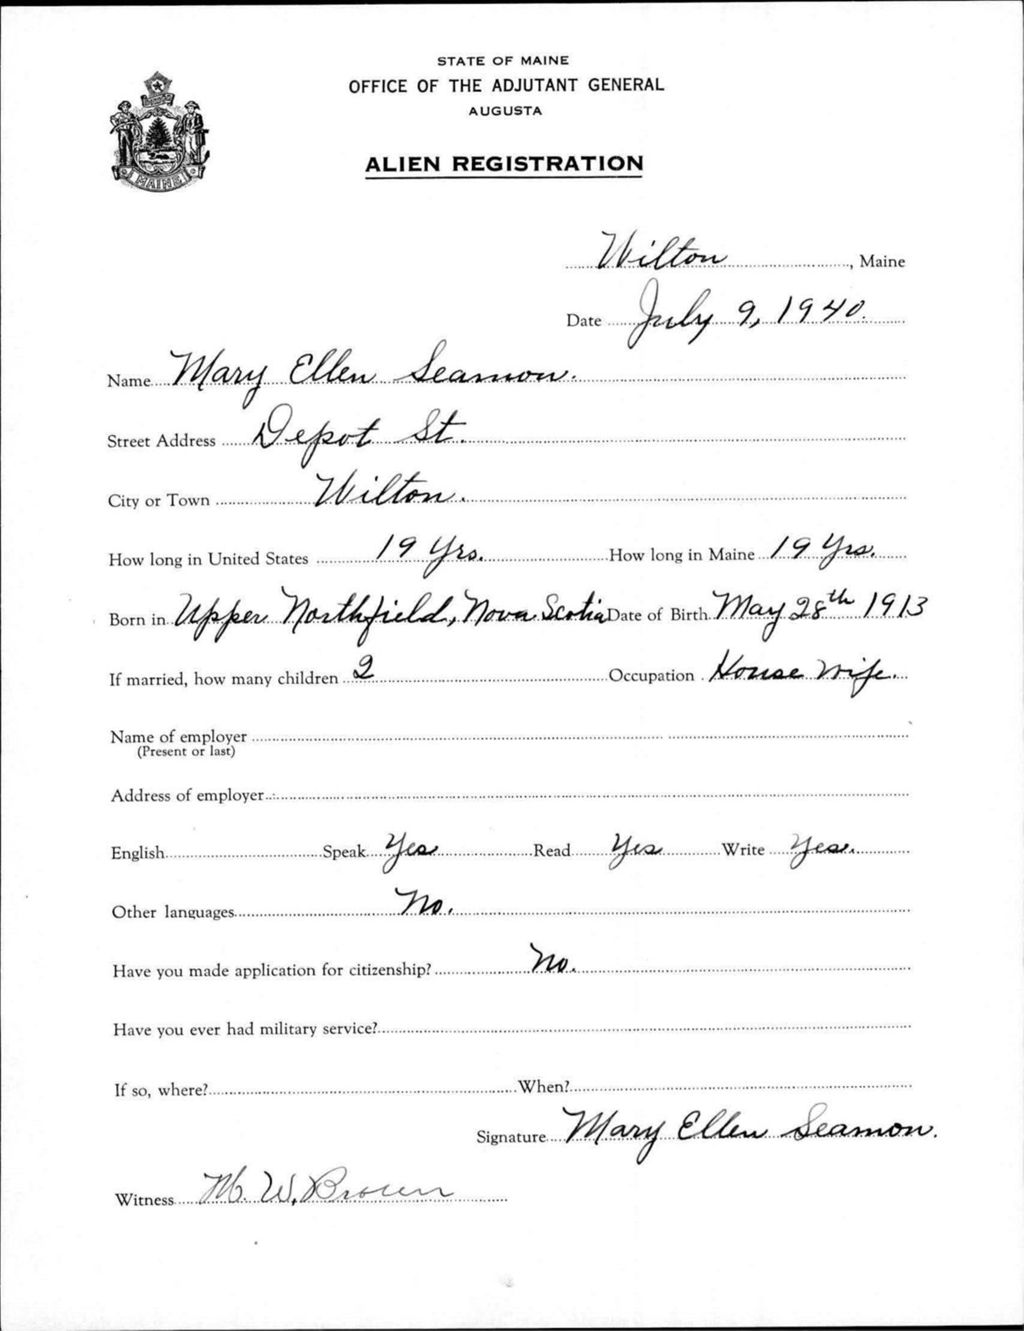 STATE OF MAINE
OFFICE OF THE ADJUTANT GENERAL
AUGUSTA
ALIEN REGISTRATION
MAINE
Wilton, Maine
Date July 9, 1940.
Name Mary Ellen Seamon.
Street Address Depot St.
City or Town Wilton.
How long in United States 19 Yrs. How long in Maine 19 Yrs.
Born in Upper Northfield, Nova Scotia Date of Birth May 28th 1913
If married, how many children 2 Occupation House wife.
Name of employer
(Present or last)
Address of employer
English Speak Yes Read Yes Write Yes.
Other languages No.
Have you made application for citizenship? No.
Have you ever had military service?
If so, where? When?
Signature Mary Ellen Seamon.
Witness M. W. Brown